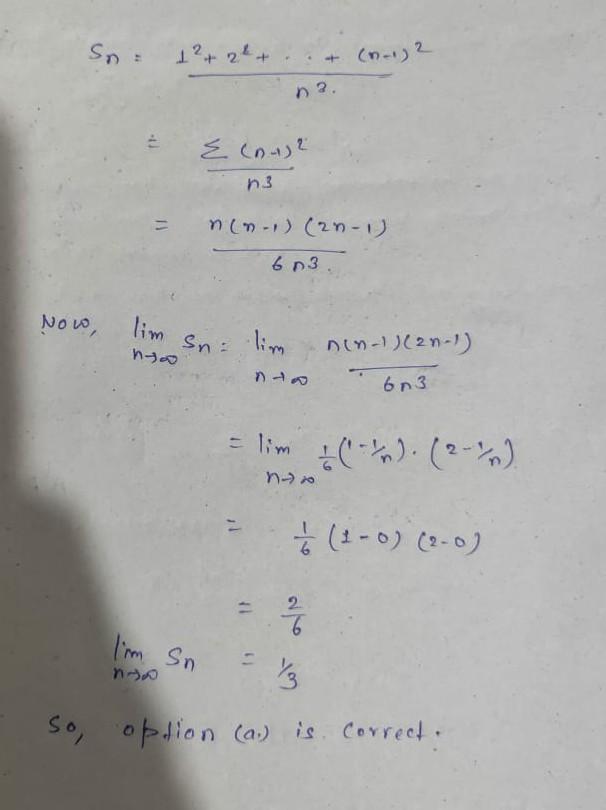 Sn = 1² + 2² + . . + (n-1)² / n³.
= Σ (n-1)² / n3
= n(n-1) (2n-1) / 6n3.
Now, lim n→∞ Sn = lim n→∞ n(n-1)(2n-1) / 6n3
= lim n→∞ 1/6 (1-1/n). (2-1/n)
= 1/6 (1-0) (2-0)
= 2/6
lim n→∞ Sn = 1/3
So, option (a.) is correct.